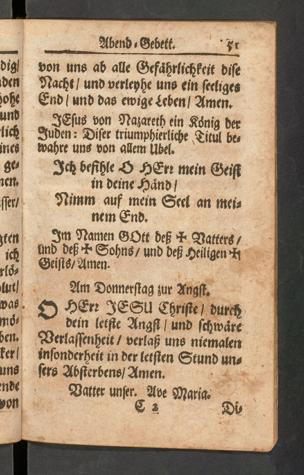 Abend-Gebett. 51
von uns ab alle Gefährlichkeit dise
Nacht/ und verleyhe uns ein seeliges
End/ und das ewige Leben/ Amen.
JEsus von Nazareth ein König der
Juden: Diser triumphierliche Titul be-
wahre uns von allem Ubel.
Ich befihle O HErr mein Geist
in deine Händ/
Nimm auf mein Seel an mei-
nem End.
Im Namen GOtt deß ✠ Vatters/
und deß ✠ Sohns/ und deß Heiligen ✠
Geists/ Amen.
Am Donnerstag zur Angst.
O HErr JESU Christe/ durch
dein letste Angst/ und schwäre
Verlassenheit/ verlaß uns niemalen
insonderheit in der letsten Stund un-
sers Absterbens/ Amen.
Vatter unser. Ave Maria.
C 2 Di-